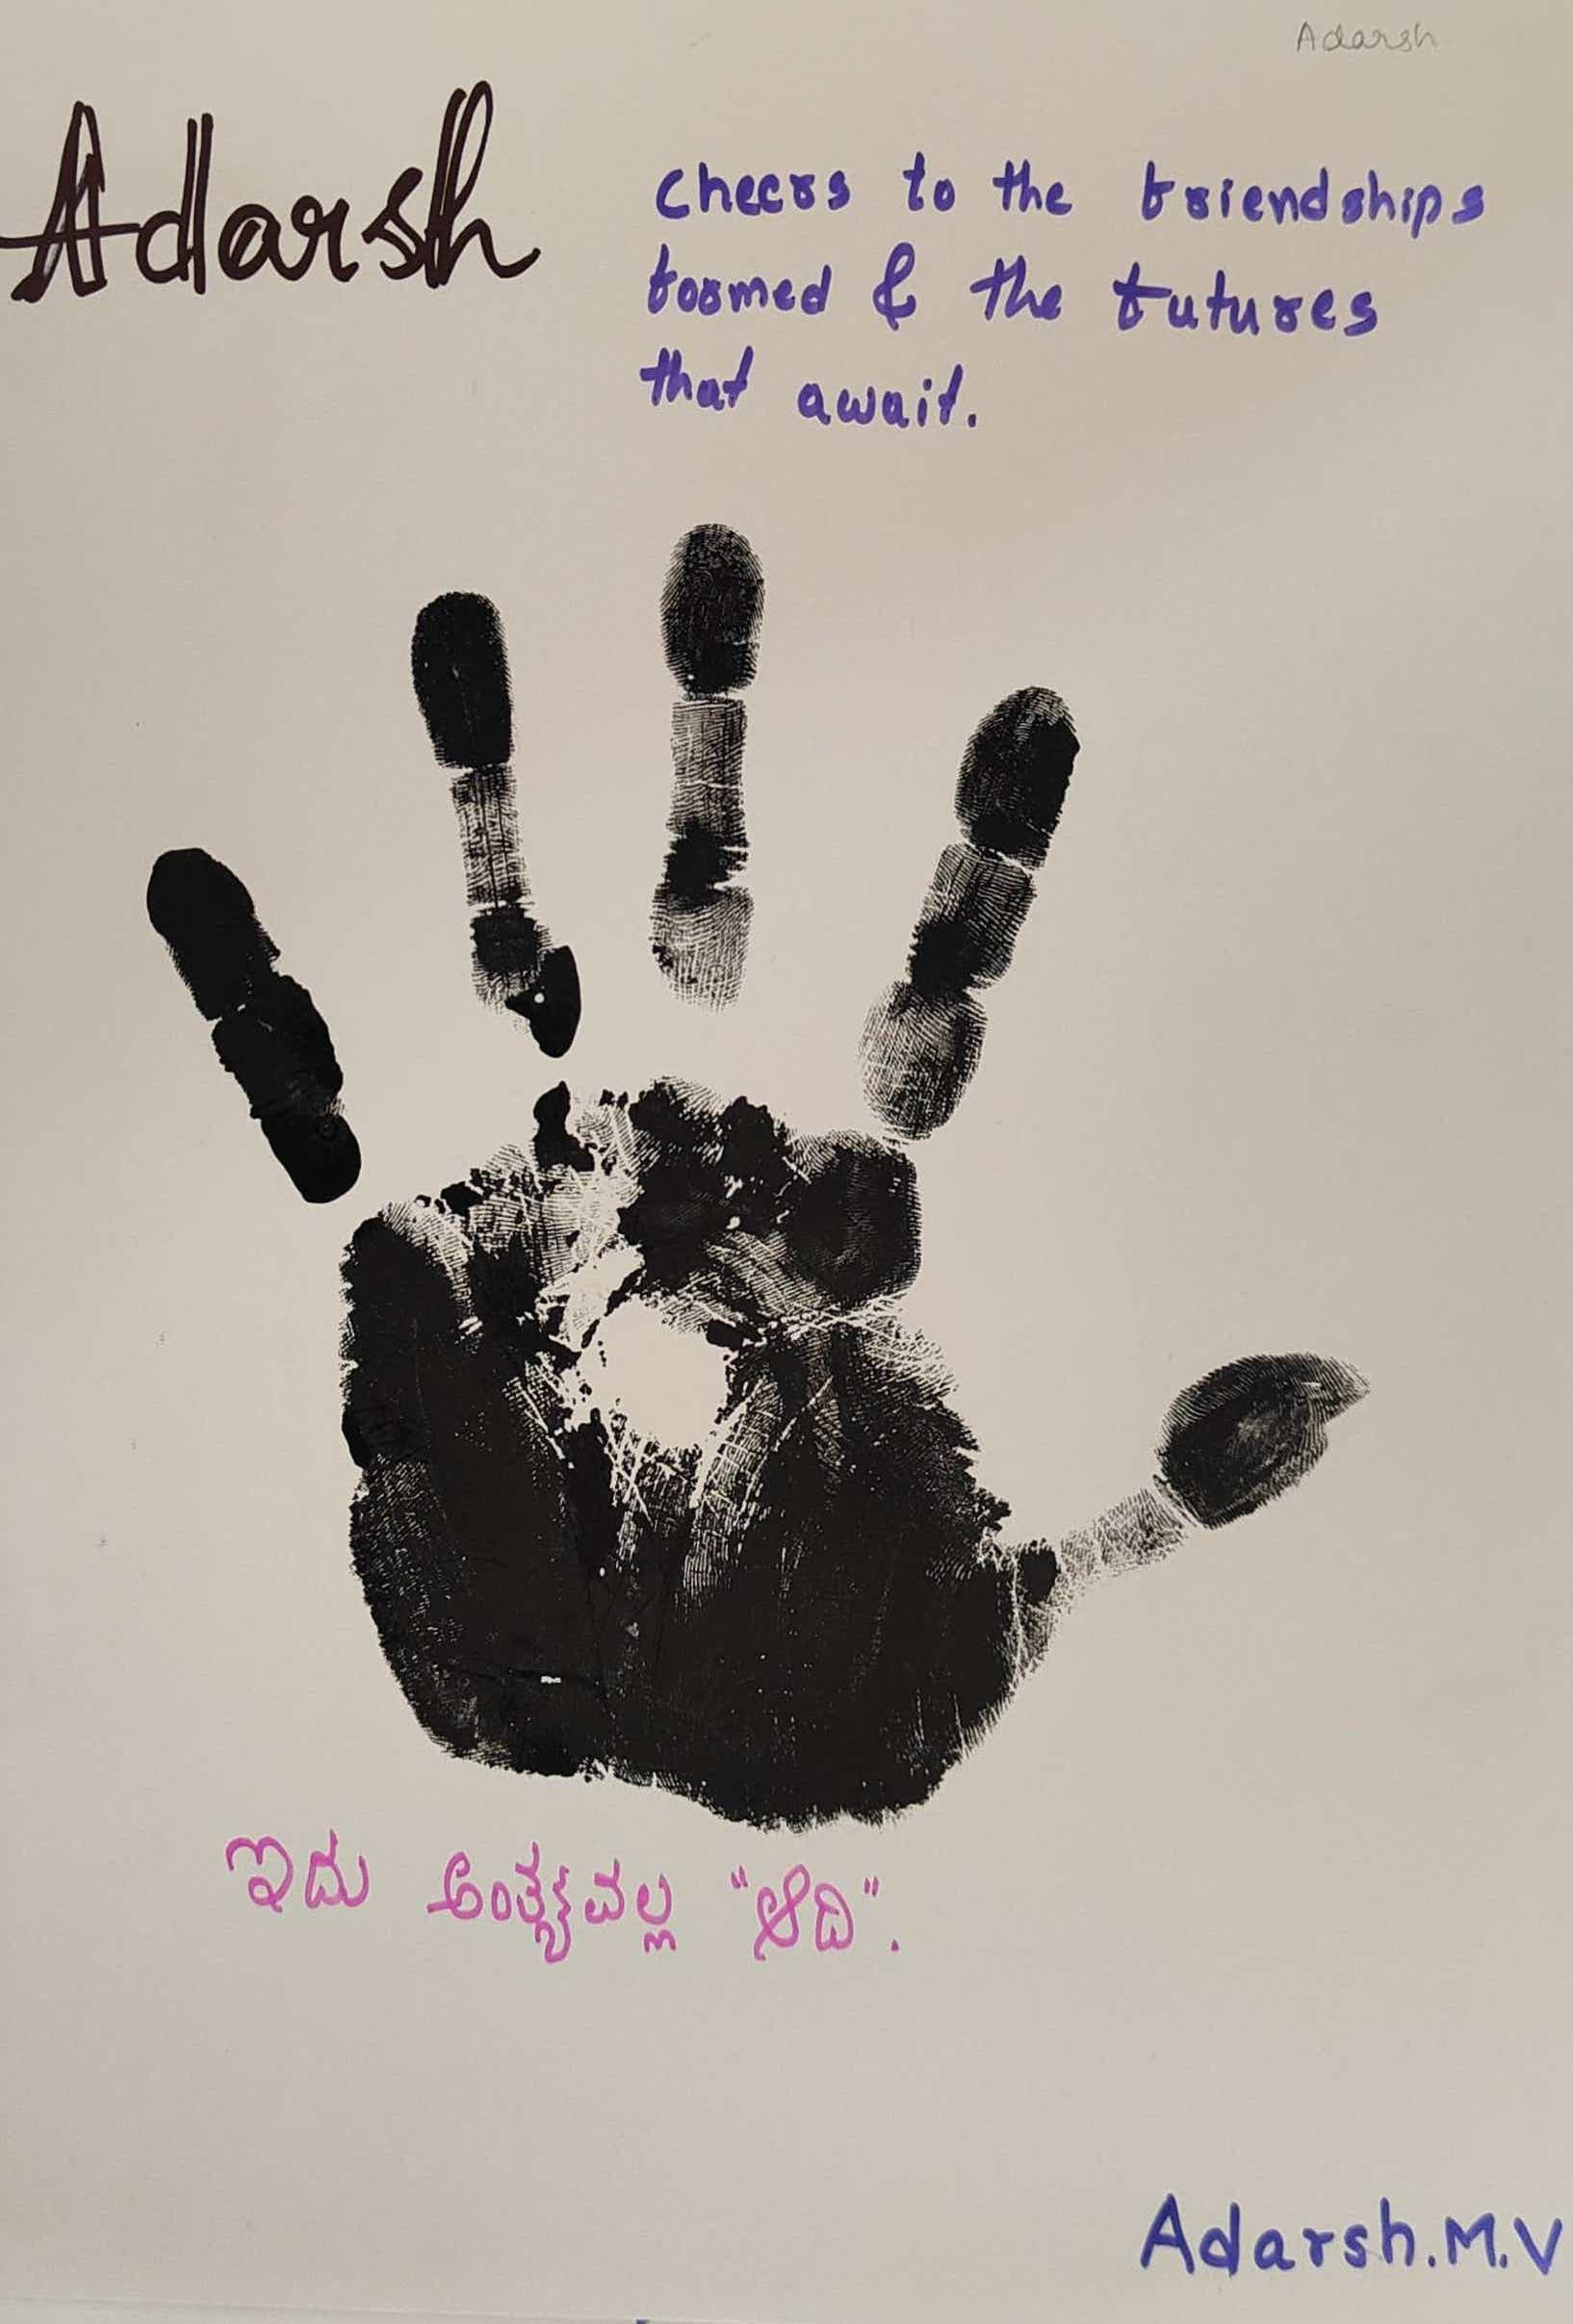 Adarsh
Adarsh
Cheers to the friendships
formed & the futures
that await.
ಇದು ಅಂತ್ಯವಲ್ಲ "ಆದಿ".
Adarsh.M.V